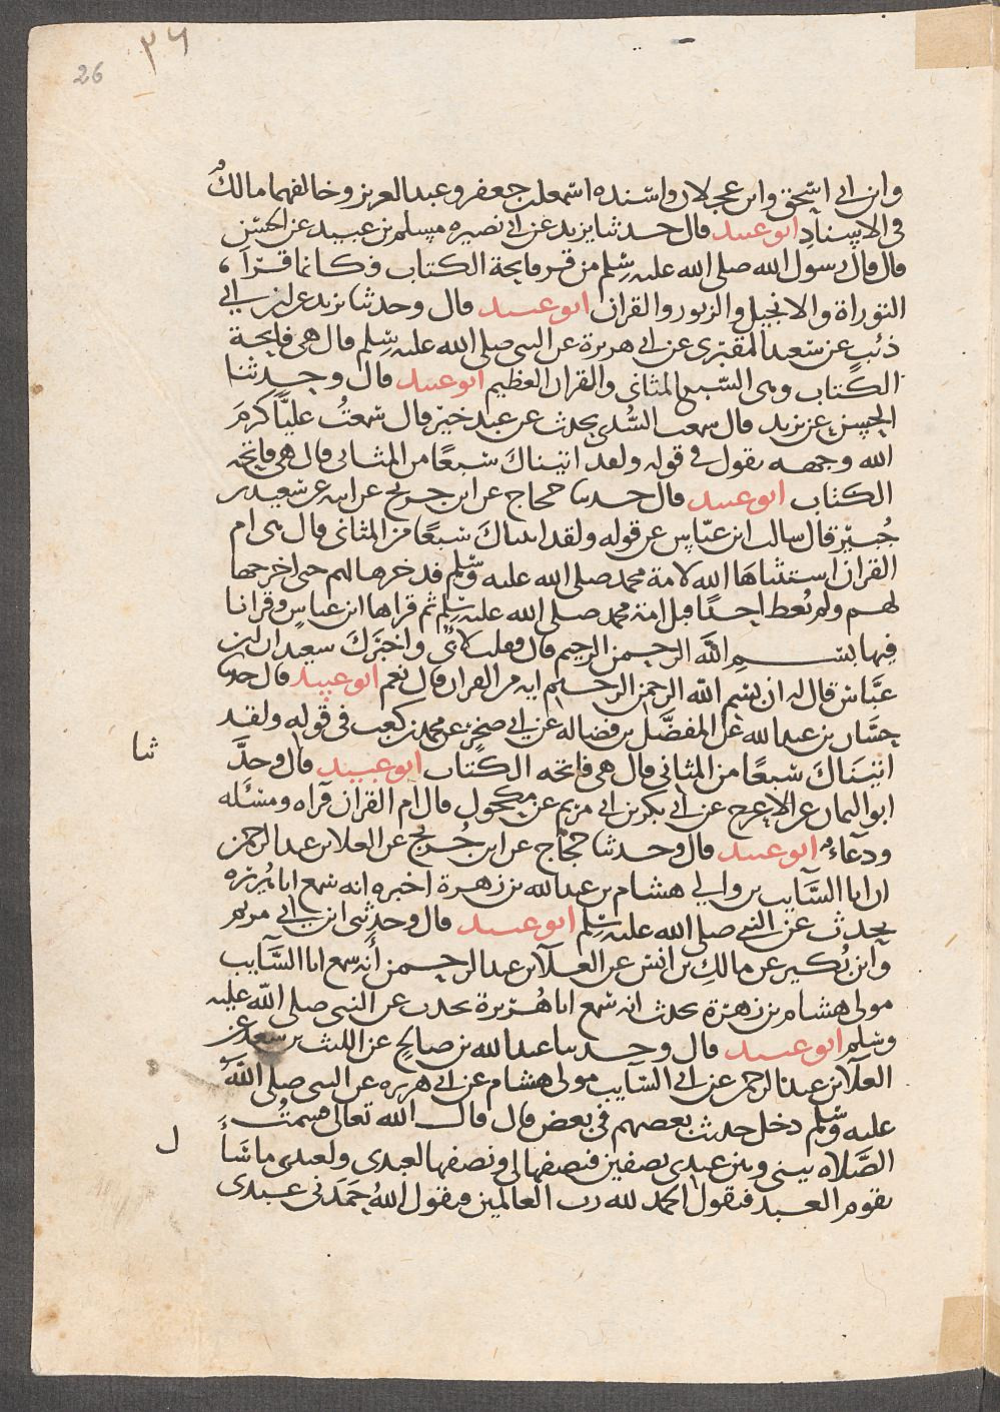 ٢٦
26
وابن ابى اسحق وابن عجلان واسنده اسمعيل بن جعفر وعبد العزيز وخالفهما مالك
فى الاسناد ابو عبيد قال حدثنا يزيد عن ابى نصيره مسلم بن عبيد عن الحسن
قال قال رسول الله صلى الله عليه وسلم من قرا فاتحة الكتاب فكانما قرا
التوراة والانجيل والزبور والقران ابو عبيد قال وحدثنا يزيد عن ابن ابى
ذئب عن سعيد المقبرى عن ابى هريرة عن النبى صلى الله عليه وسلم قال هى فاتحة
الكتاب وهى السبع المثانى والقران العظيم ابو عبيد قال وحدثنا
الحسن عن يزيد قال سمعت السُّدى يحدث عن عبد خير قال سمعتُ عليًّا كرمَ
الله وجهه يقول فى قوله ولقد اتيناكَ سَبعًا من المثانى قال هى فاتحة
الكتاب ابو عبيد قال حدثنا حجاج عن ابن جريج عن ابيه عن سعيد بن
جُبير قال سالت ابن عبّاس عن قوله ولقد اتيناكَ سَبعًا من المثانى قال هى ام
القران استثناها الله لامة محمد صلى الله عليه وسلم فدخرها لهم حتى اخرجها
لهم ولم يُعط احدًا قبل امة محمد صلى الله عليه وسلم ثم قراها ابن عباس وقرا نا
فيها بسم الله الرحمن الرحيم قال فقلت لابى واخبرَكَ سعيد ان ابن
عبّاس قال له ان بسم الله الرحمن الرحيم ايه من القران قال نعم ابو عبيد قال حدثنا
حسَّان بن عبد الله عن المفضَّل بن فضاله عن ابى صخر عن محمد بن كعب فى قوله ولقد
اتينَاكَ سَبعًا من المثانى قال هى فاتحه الكتاب ابو عبيد قال وحدَّ
ثنا
ابو اليمان عن الاعرج عن ابى بكر بن ابى مريم عن مكحول قال ام القران قراه ومسئله
ودعاء ابو عبيد قال وحدثنا حجاج عن ابن جُريج عن العلا بن عبد الرحمن
ان ابا السَّايب مولى هشام بن عبد الله بن زهرة اخبره انه سمع ابا هُريره
يحدث عن النبى صلى الله عليه وسلم ابو عبيد قال وحدثنى ابن ابى مريم
وابن بُكير عن مالكِ بن انس عن العلآ بن عبد الرحمن أنه سمع ابا السَّآيب
مولى هشام بن زهرة يحدث انه سمع ابا هُريرة يحدث عن النبى صلى الله عليه
وسلم ابو عبيد قال وحدثنا عبد الله بن صالح عن الليث بن سعد عن
العلآ بن عبد الرحمن عن ابى السّآيب مولى هشام عن ابى هريره عن النبى صلى الله
عليه وسلم دخل حديث بعضهم فى بعض قال قال الله تعالى قسمتُ
ل
الصَّلاه بينى وبين عبدى نصفين فنصفها لى ونصفها لعبدى ولعبدى ما سَأ
يقوم العبد فيقول الحمد لله رب العالمين فيقول اللهُ حَمَدَنى عبدى